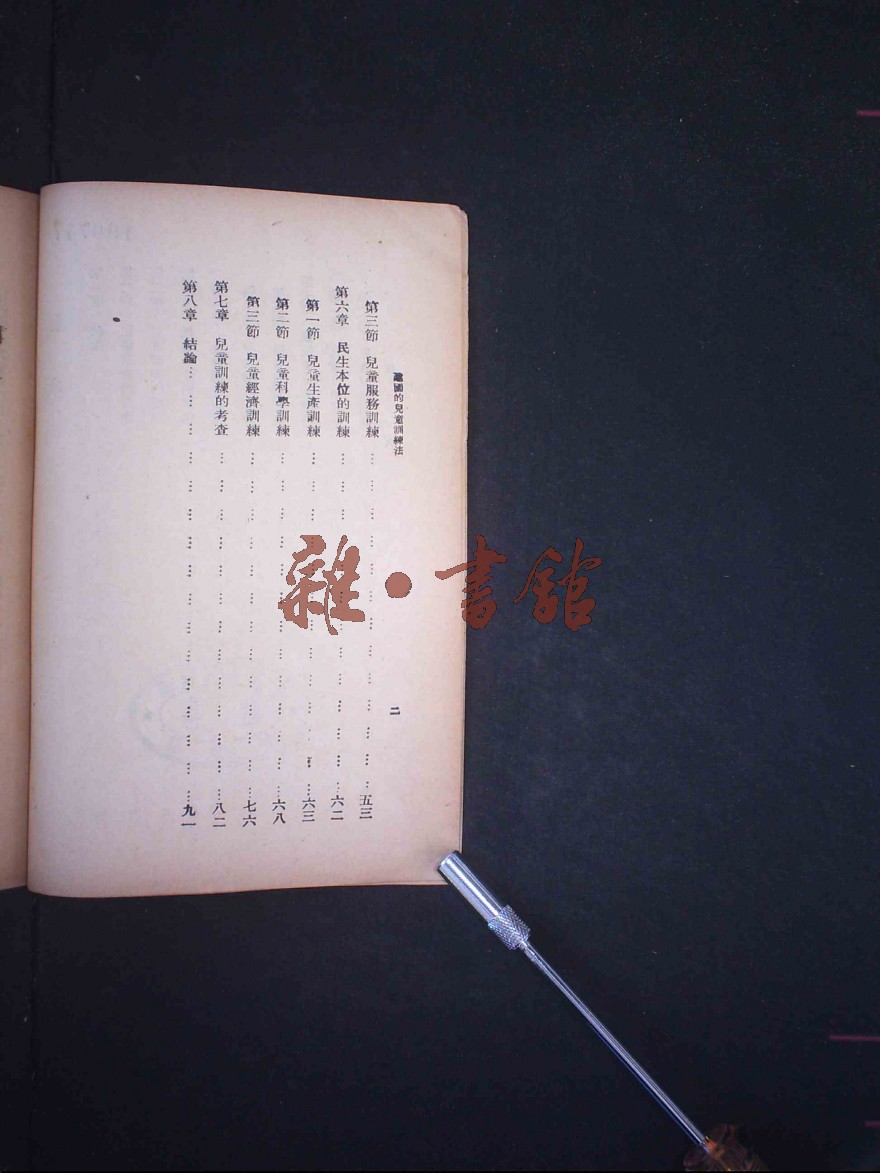 建國的兒童訓練法
二
第三節 兒童服務訓練……五三
第六章 民生本位的訓練……六二
第一節 兒童生產訓練……六三
第二節 兒童科學訓練……六八
第三節 兒童經濟訓練……七六
第七章 兒童訓練的考查……八二
第八章 結論……九一
雜·書館